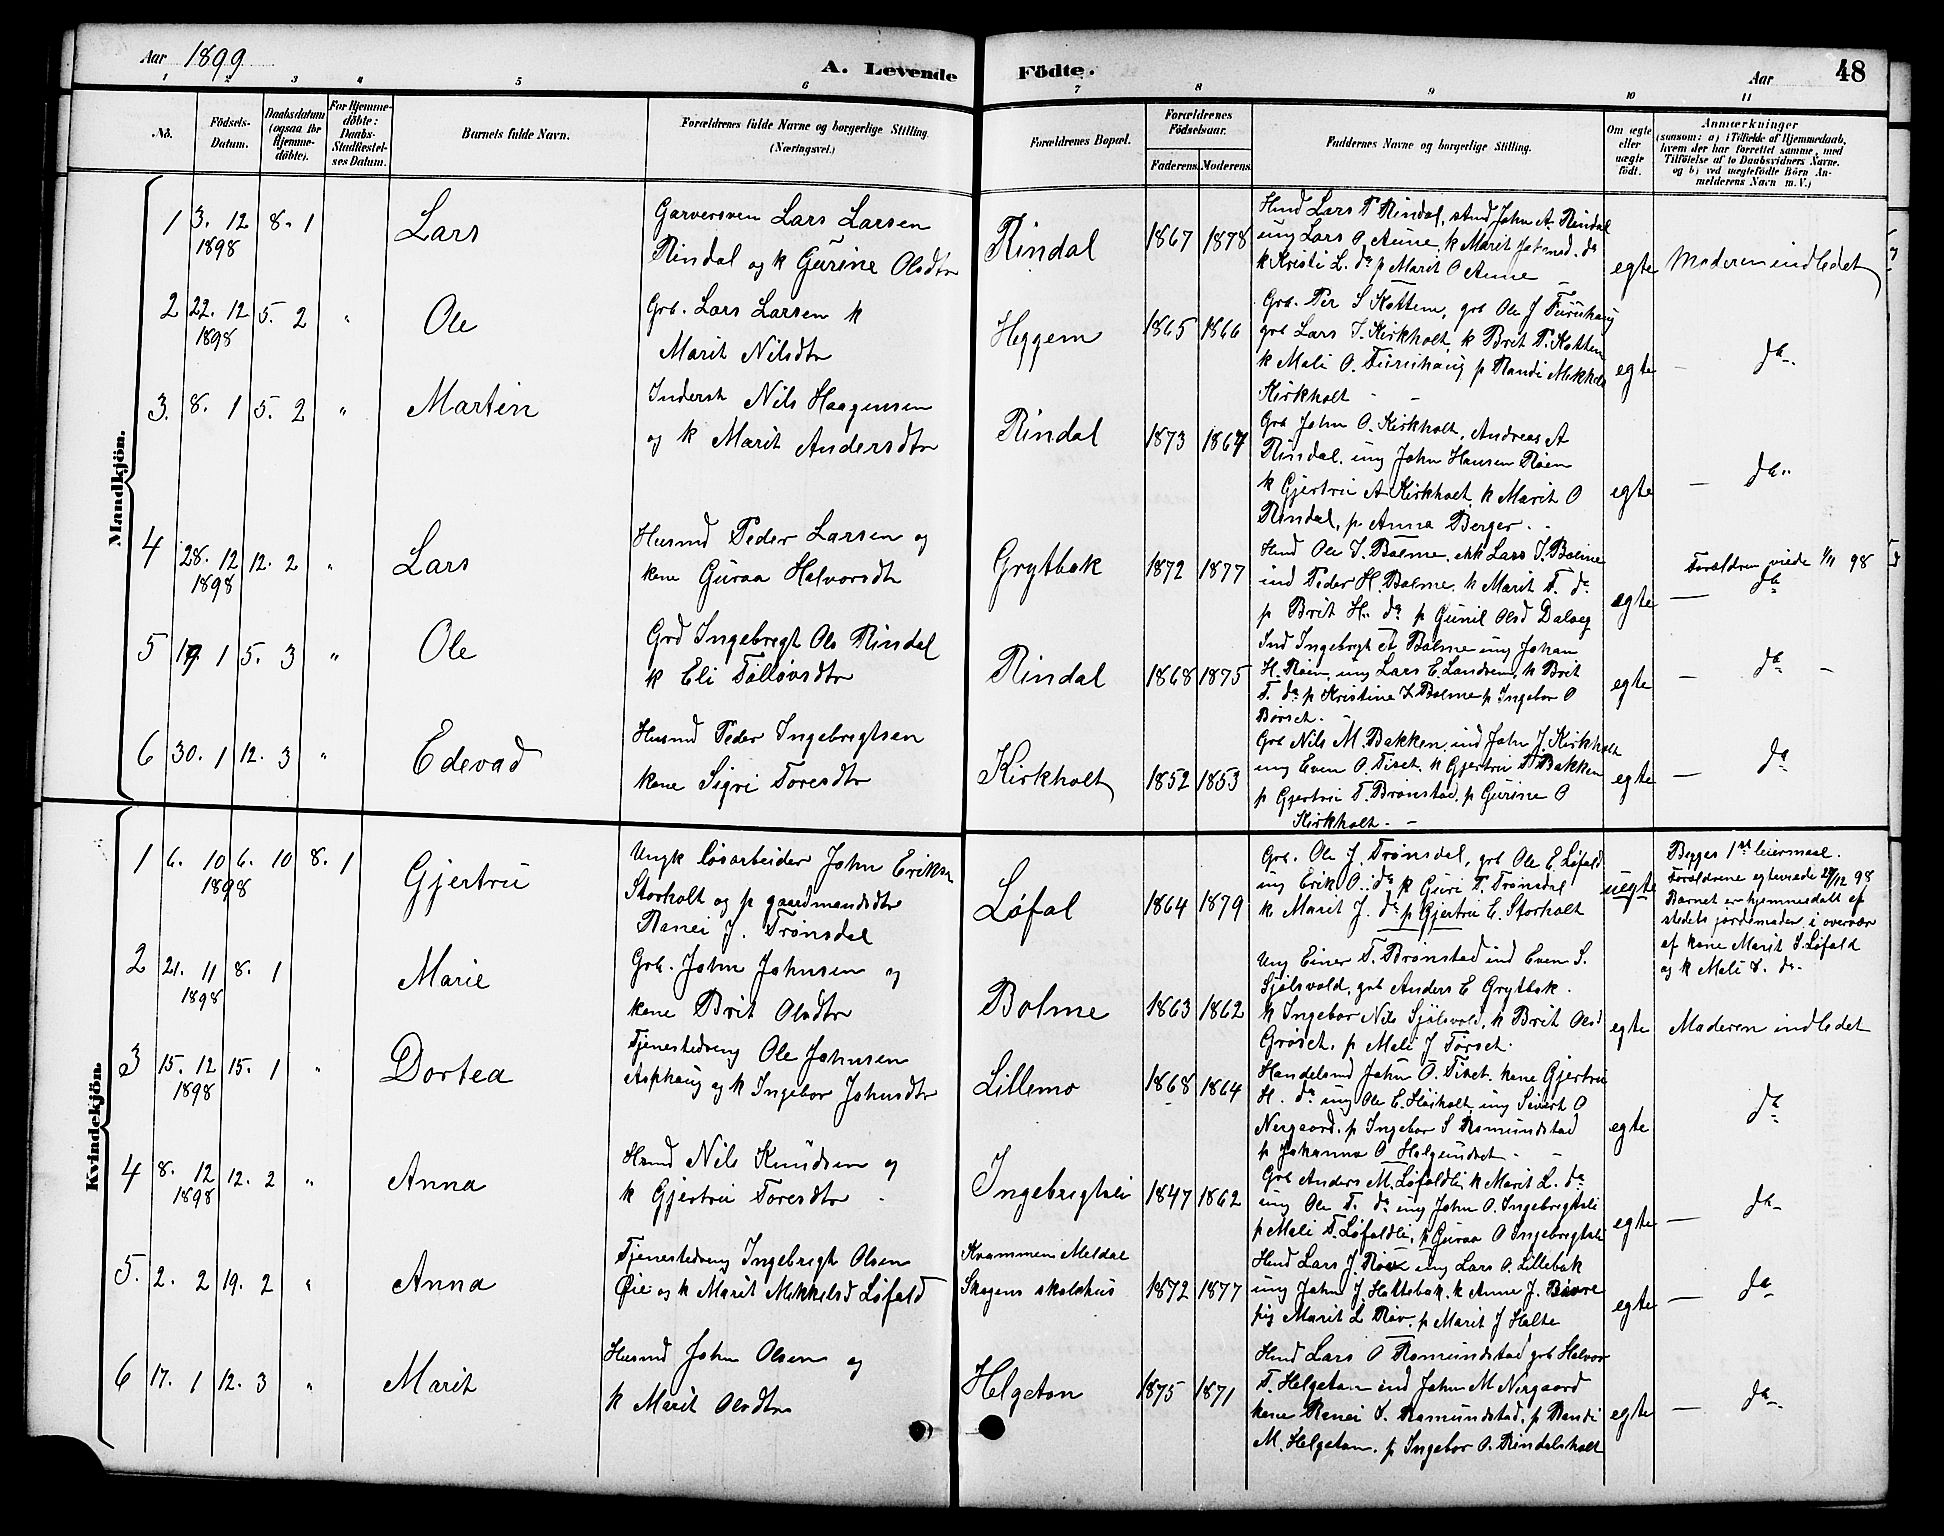 Aar 1899
A. Levende Födte.
Aar 48
1 2 3 4 5 6 7 8 9 10 11
No.
Födsels-Datum.
Daabsdatum (ogsaa for Hjemme-döbte).
For Hjemme-döbte: Daabs-Stadfæstel-ses Datum.
Barnets fulde Navn.
Forældrenes fulde Navne og borgerlige Stilling. (Næringsvei.)
Forældrenes Bopæl.
Forældrenes Födselsaar.
Faderens. Moderens.
Faddernes Navne og borgerlige Stilling.
Om ægte eller uægte födt.
Anmærkninger
(saasom: a) i Tilfælde af Hjemmedaab,
hvem der har forrettet samme, med
Tilföielse af to Daabsvidners Navne.
og b) ved uægtefödte Börn An-
melderens Navn m. V.)
Mandkjön.
1 3. 12 1898 8. 1 Lars
Garversven Lars Larsen
Rindal og k Gurine Olsdtr
Rindal 1867 1878
Husd Lars P Rindal, smd John A. Rindal
ung Lars O. Aune, k Marit da
k Kristi L. da p Marit O Aune
egte Moderen indledet
2 22. 12 1898 5. 2 " Ole
Grb. Lars Larsen k
Marit Nilsdtr
Heggem 1865 1866
Grb. Per S Kottem, grb Ole J Furuhaug
grb Lars J. Kirkholt, k Brit P. Kottem
k Mali O. Furuhaug p Randi Mikkels
Kirkholt - -
egte - da
3. 8. 1 5. 2 " Martin
Inderst Nils Haagensen
og k Marit Andersdtr
Rindal 1873 1867
Grb John O. Kirkholt, Andreas A
Rindal. ung John Hansen Røen
k Gjertru A Kirkholt, k Marit O
Rindal, p Anna Berger.
egte - da
4 28. 12 1898 12. 2 " Lars
Husmd Peder Larsen og
kone Guraa Halvorsdtr
Grytbak 1872 1877
Husd Ole J. Bolme, Lars J. Bolme
ind Peder H. Bolme, k Marit T. da
p Brit H. da p Gunil Olsd Dalseg
egte Forældren viede 1/11 98
- da
5 19. 1 5. 3 " Ole
Grd Ingebregt Ols Rindal
k Eli Tolløvsdtr
Rindal 1868 1875
Ind Ingebrigt A Bolme ung Johan
H. Røen, ung Lars E Landrem, k Brit
T. da p Kristine L Bolme p Ingebor O
Børset.
egte - da -
6 30. 1 12. 3 " Edevad
Husmd Peder Ingebregtsen
kone Sigri Toresdtr
Kirkholt 1852 1853
Grb Nils M. Bakken, ind John J. Kirkholt
ung Even O. Tiset. k Gjertru T. Bakken
p Gjertru T. Brønstad, p Gurine O
Kirkholt. -
egte - da
Kvindekjön.
1 6. 10 1898 6. 10 8. 1 Gjertru
Ungk løsarbeider John Eriksen
Storholt og p gaardmandsdtr
Ranei J. Trønsdal
Løfal 1864 1879
Grb. Ole J. Trønsdal, grb Ole E. Løfald
ung Erik O. da k Guri P. Trønsdal
k Marit J. da p Gjertru E. Storholt
uegte
Begges 1ste leiermaal.
Forældrene egteviede 29/12 98
Barnet er hjemmedøbt af
stedets jordemoder, i overvær
af kone Marit S. Løfald
og k Mali S. da.
2 21. 11 1898 8. 1 Marie
Grb. John Johnsen og
kone Brit Olsdtr
Bolme 1863 1862
Ung Einer T. Brønstad ind Even S.
Sjølsvold, grb Anders E Grytbak.
k Ingebor Nils Sjølsvold, k Brit Olsd
Grøset, p Mali J Tørset.
egte Moderen indledet
3 15. 12 1898 15. 1 " Dortea
Tjenestedreng Ole Johnsen
Asphaug og k Ingebor Johnsdtr
Lillemo 1868 1864
Handelsmd John O. Tiset. kone Gjertru
H. da ung Ole E. Høiholt, ung Sivert O
Nergaard, p Ingebor S Romundstad
p Johanna O Helgeundset -
egte da
4 8. 12 1898 12. 2 " Anna
Husmd Nils Knudsen og
k Gjertru Toresdtr
Ingebrigtsli 1847 1862
Grb Anders M. Løfaldli, k Marit L. da
ung Ole T. da ung John O. Ingebregtsli
p Mali T. Løfaldli, p Guraa O Ingebregtsli
egte - da
5. 2. 2 19. 2 " Anna
Tjenestedreng Ingebregt Olsen
Øie og k Marit Mikkelsd Løfald
Kvammen Meldal
Skogens skolehus 1872 1877
Husd Lars J. ung Lars O. Lillebak
ung John J. Heltebak, k Anne J.
pig Marit L Røv, p Marit J Halte
egte - da
6 17. 1 12. 3 " Marit
Husmd John Olsen og
k Marit Olsdtr
Helgeton 1875 1871
Husd Lars O Romundstad grb Halvor
T. Helgetun ind John M Nergaard
kone Ranei S. Romundstad, p Randi
M. Helgeton. p Ingebor O. Rindalsholt
egte - da